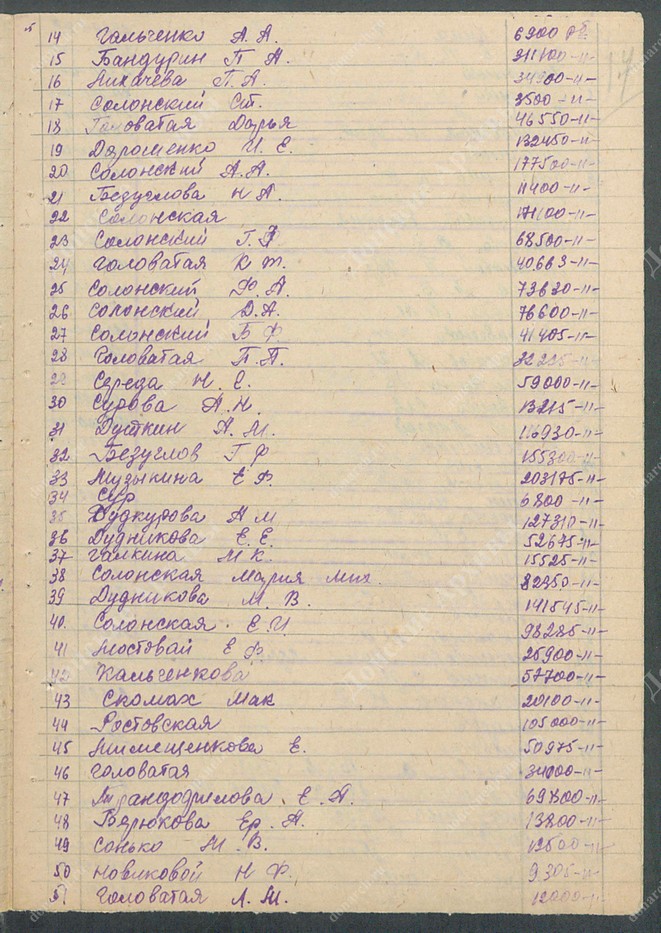 14 Гальченко А. А. 6900 рб.
15 Бандурин П А. 211100-11-
16 Лихачева П. А 34900-11-
17 Солонский Ст. 3500-11-
18 Головатая Дарья 46550-11-
19 Дарошенко И. Е. 132450-11-
20 Солонский А. А. 177500-11-
21 Безуглова Н А. 11400-11-
22 Солонская
23 Солонский Г. Ф 68500-11-
24 Головатая К т. 40663-11-
25 Солонский Ф А. 73620-11-
26 Солонский Д. А. 76600-11-
27 Солонский Б Ф 41405-11-
28 Головатая П. П.
29 Середа Н. Е. 59000-11-
30 Сурова А. Н. 13215-11-
31 Дуткин А. М. 116930-11-
32 Безуглов Г Ф 155300-11-
33 Музыкина Е Ф. 203175-11-
34 Сур 6800-11-
35 Дудкурова А М 127310-11-
36 Дудникова Е. Е. 52675-11-
37 Галкина М К. 15525-11-
38 Солонская Мария Мих. 82350-11-
39 Дудникова М. В. 141545-11-
40. Солонская. Е. И. 98285-11-
41 Мостовай Е Ф. 25900-11-
42 Кальченкова 57700-11-
43 Скомах Мак 20100-11-
44 Ростовская 105000-11-
45 Е. 50975-11-
46 Головатая 34000-11-
47 Е. А. 69800-11-
48 Бирюкова Ер. А. 13800-11-
49 Сонько М. В. 12500-11-
50 Новиковой Н Ф. 9305-11-
51 Головатая Л. М. 12000-11-